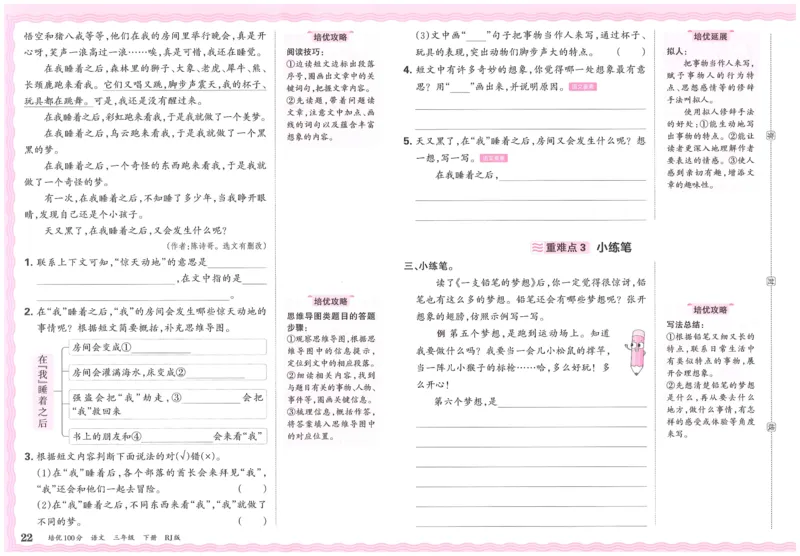 悟空和猪八戒等等,他们在我的房间里举行晚会,真是开
心呀,笑声一浪高过一浪……唉,真是可惜,我还在睡觉。
在我睡着之后,森林里的狮子、大象、老虎、犀牛、熊、
长颈鹿跑来看我。它们又唱又跳,脚步声震天,我的杯子、
玩具都在跳舞。可是,我还是没有醒过来。
在我睡着之后,彩虹跑来看我,于是我就做了一个美梦。
在我睡着之后,乌云跑来看我,于是我就做了一个黑
黑的梦。
在我睡着之后,一个奇怪的东西跑来看我,于是我就
做了一个奇怪的梦。
有一次,在我睡着之后,不知睡了多少年,当我睁开眼
睛,发现自己还是个小孩子。
天又黑了,在我睡着之后,又会发生什么呢?
(作者:陈诗哥。选文有删改)
1. 联系上下文可知,“惊天动地”的意思是
,在文中指的是
。
2. 在“我”睡着之后,“我”的房间会发生哪些惊天动地的
事情呢? 根据短文简要概括,补充思维导图。
在“我”睡着之后
房间会变成①
房间会灌满海水,床变成②
强盗会把“我”劫走,③ 会把
“我”救回来
书上的朋友和④ 会来看“我”
3. 根据短文内容判断下面说法的对(√)错(×)。
(1)在“我”睡着后,各个部落的首长会来拜见“我”,
“我”还会和他们一起去冒险。 ( )
(2)在“我”睡着之后,不同东西来看“我”,“我”就做了
不同的梦。 ( )
22 培优100分 语文 三年级 下册 RJ版
培优攻略
阅读技巧:
①边读短文边标出段落
序号,圈画出文章中的关
键词句,把握文章内容。
②先读题,带着问题读
文章,注意文中加点、画
线的词句以及蕴含丰富
想象的内容。
培优攻略
思维导图类题目的答题
步骤:
①观察思维导图,根据思
维导图中的信息提示,
定位到文中的相应段落。
②细读相关内容,找到
与题目有关的事物、人物、
事件等,圈画关键信息。
③梳理信息,概括作答,
将答案填入思维导图中
的对应位置。
(3)文中画“ ”句子把事物当作人来写,通过杯子、
玩具的表现,突出动物们脚步声大的特点。 ( )
4. 短文中有许多奇妙的想象,你觉得哪一处想象最有意
思? 用“ ”画出来,并说明原因。
5. 天又黑了,在“我”睡着之后,房间又会发生什么呢? 想
一想,写一写。
在我睡着之后,
重难点3 小练笔
三、小练笔。
读了《一支铅笔的梦想》后,你一定觉得很惊讶,铅
笔也有这么多的梦想。铅笔还会有哪些梦想呢? 张开
想象的翅膀,仿照示例写一写。
例 第五个梦想,是跑到运动场上。知道
我要做什么吗? 我要当一会儿小松鼠的撑竿,
当一阵儿小猴子的标枪……哈,多么好玩! 多
么开心!
第六个梦想,是
培优延展
拟人:
把事物当作人来写,
赋予事物人的行为特
点、思想感情等的修辞
手法叫拟人。
使用拟人修辞手法
的好处:①能生动地写
出事物的特点。②能让
读者更深入地理解作者
要表达的情感。③使人
感到亲切有趣,增添文
章的趣味性。
培优攻略
写法总结:
①根据铅笔又细又长的
特点,联系日常生活中
有类似特点的事物,展
开合理想象。
②先想清楚铅笔的梦想
是什么,再从要去什么
地方,做什么事情,有怎
样的感受或体验等角度
来写。